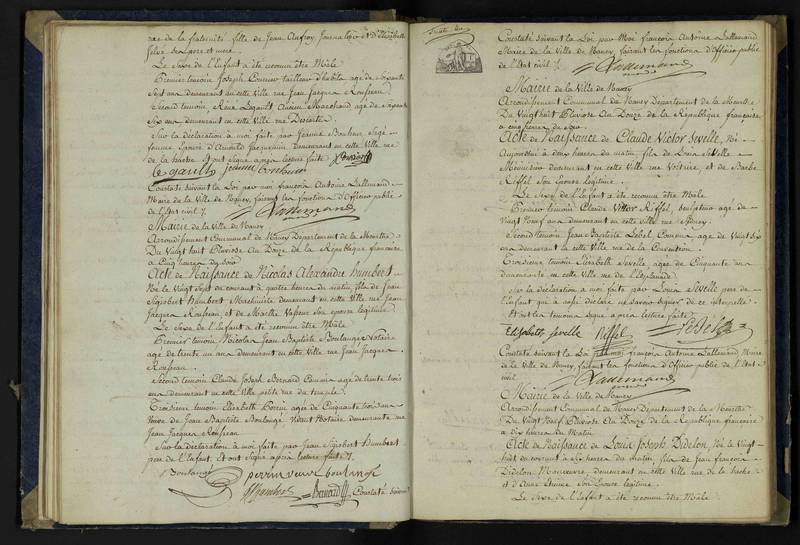 rue de la fraternité fille de Jean Aufroy Journalier et d'Elisabeth
Le Sexe de l'Enfant a été reconnu être Mâle
Premier temoin Joseph tailleur d'habits agé de Soixante
Sept ans demeurant en cette Ville rue Jean Jacques Rousseau
Second temoin René Ligault ancien Marchand agé de Soixante
Six ans demeurant en cette Ville rue Descartes
Sur la déclaration à moi faite par Jeanne Bonheur Sage
femme Epouse d'Arnould Jacquemin demeurant en cette Ville rue
de la hache Et ont Signé après lecture faite
Constaté suivant la Loi par moi françois Antoine Lallemand
Maire de la Ville de Nancy, faisant les fonctions d'Officier public
de l'Etat civil
Lallemand
Mairie de la Ville de Nancy
Arrondissement Communal de Nancy Département de la Meurthe
Du Vingt huit Pluviose An Douze de la République française
à Cinq heures du Soir
Acte de Naissance de Nicolas Alexandre humbert
Né le Vingt Sept du courant à quatre heures du matin, fils de Jean
Sigisbert humbert Machiniste demeurant en cette Ville rue Jean
Jacques Rousseau, et de Marthe son épouse legitime
Le Sexe de l'Enfant a été reconnu être Mâle
Premier temoin Nicolas Jean Baptiste Boulanger Notaire
agé de trente un ans demeurant en cette Ville rue Jean Jacques
Rousseau
Second temoin Claude Joseph Bernard Commis agé de trente trois
ans demeurant en cette Ville petite rue du temple
Troisieme temoin Elisabeth agée de Cinquante trois ans
Veuve de Jean Baptiste Boulangé vivant Notaire demeurante rue
Jean Jacques Rousseau
Sur la déclaration à moi faite par Jean Sigisbert humbert
pere de l'Enfant. Et ont Signé après lecture faite
Boulangé
veuve boulangé
Humbert Bernard Constaté suivant
Constaté suivant la Loi par Moi françois Antoine Lallemand
Maire de la Ville de Nancy, faisant les fonctions d'Officier public
de l'Etat civil
Lallemand
Mairie de la Ville de Nancy
Arrondissement Communal de Nancy Département de la Meurthe
Du Vingt huit Pluviose An Douze de la République française
à cinq heures du Soir
Acte de Naissance de Claude Victor Sevelle, Né
Aujourd'hui à deux heures du matin, fils de Louis Sevelle
Menuisier demeurant en cette Ville rue Voltaire, et de Barbe
Riffel Son Epouse legitime
Le Sexe de l'Enfant a été reconnu être Mâle
Premier temoin Claude Victor Riffel, Sculpteur agé de
Vingt Neuf ans demeurant en cette Ville rue
Second temoin Jean Baptiste Lebel, agé de Vingt Six
ans demeurant en cette Ville rue de la Convention
Troisieme temoin Elisabeth Sevelle agée de Cinquante ans
demeurante en cette Ville rue de l'Esplanade
Sur la déclaration à moi faite par Louis Sevelle pere de
l'Enfant qui a aussi déclaré ne savoir signer de ce interpellé
Et ont les temoins signé après lecture faite
Elisabeth Sevelle Riffel Lebel
Constaté suivant la Loi par moi françois Antoine Lallemand Maire
de la Ville de Nancy, faisant les fonctions d'Officier public de l'Etat
civil
Lallemand
Mairie de la Ville de Nancy
Arrondissement Communal de Nancy Département de la Meurthe
Du Vingt Neuf Pluviose An Douze de la République française
à dix heures du Matin
Acte de Naissance de Louis Joseph Didelon, Né le Vingt
huit du courant à Six heures du matin fils de Jean françois
Didelon Manoeuvre, demeurant en cette Ville rue de la hache
et d'Anne Son Epouse legitime
Le Sexe de l'Enfant a été reconnu être Mâle